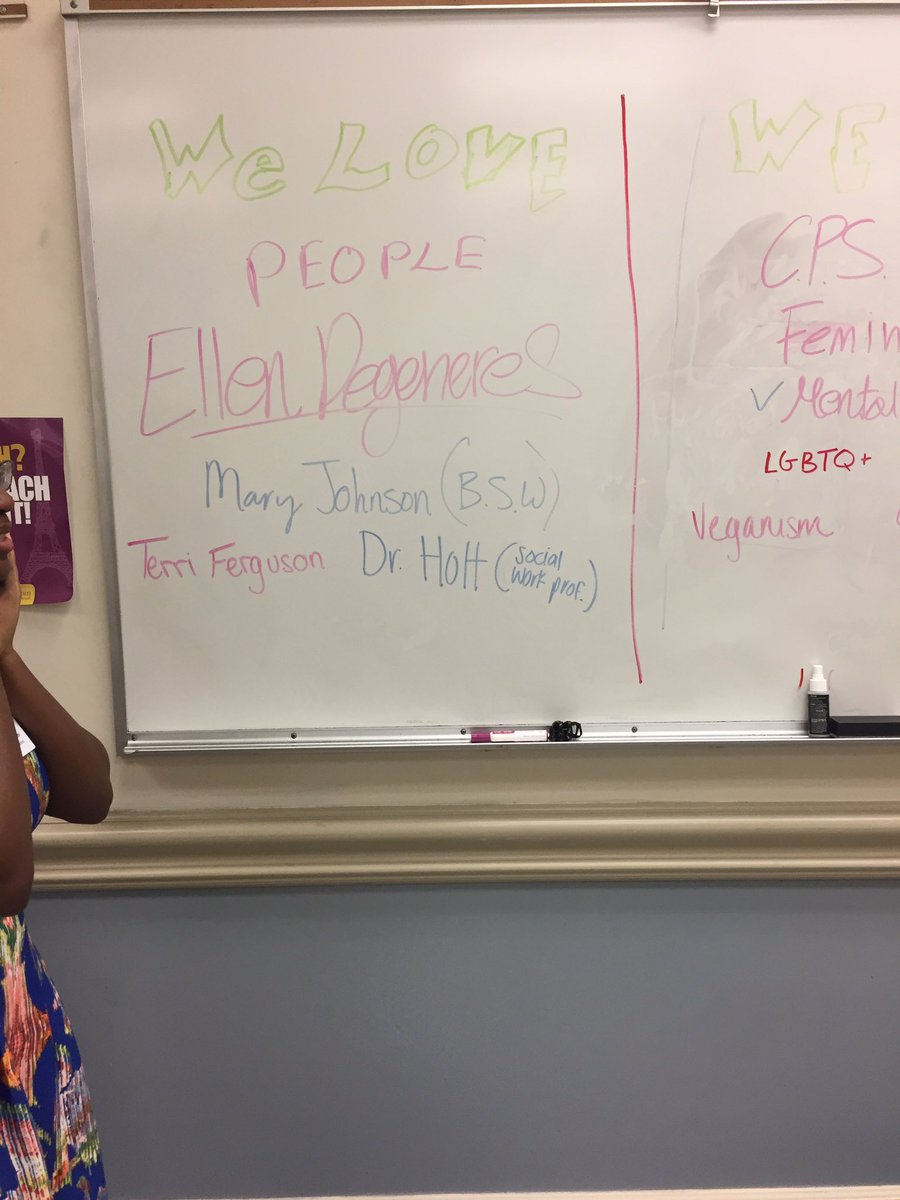 We LOVE
PEOPLE
Ellen Degeneres
Mary Johnson (B.S.W)
Terri Ferguson Dr. Holt (social work prof.)
WE
C.P.S.
Femin
✓ Mental
LGBTQ+
Veganism
H?
ACH
T!